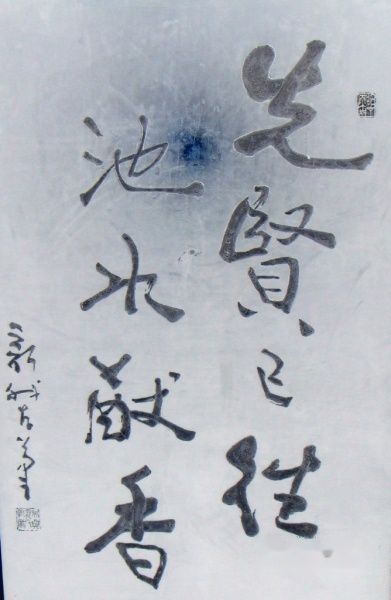 先賢已往
池水猶香